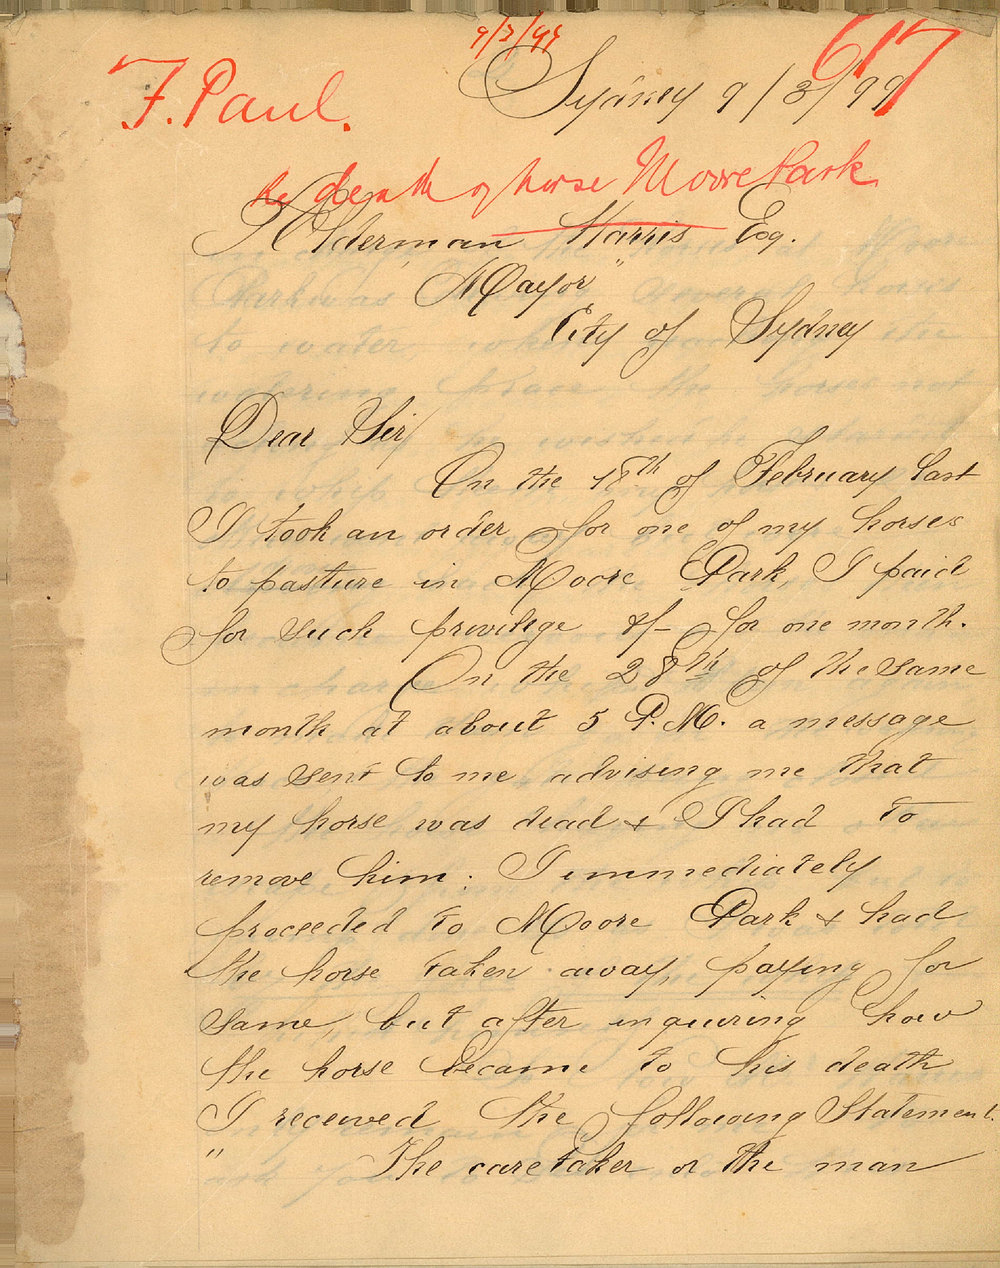 9/3/99
617
F. Paul.
Sydney 9/3/99
re death of horse Moore Park
Alderman Harris Esq.
"Mayor"
City of Sydney
Dear Sir/
On the 18th of February last
I took an order for one of my horses
to pasture in Moore Park I paid
for such privilege 4/- for one month.
On the 28th of the same
month at about 5 P.M. a message
was sent to me advising me that
my horse was dead & I had to
remove him. Immediately
proceeded to Moore Park & had
the horse taken away, paying for
same, but after inquiring how
the horse became to his death
I received the following Statement.
" The caretaker or the man